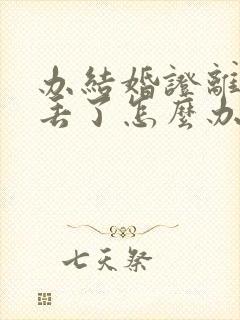 办結婚證離
丟了怎麼办
七天祭